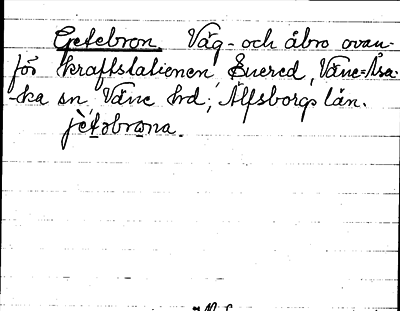 Getebron Väg- och åbro ovan-
för kraftstationen Önered, Väne-Åsa-
ka sn, Väne hd, Älfsborgs län.
jètəbrона.